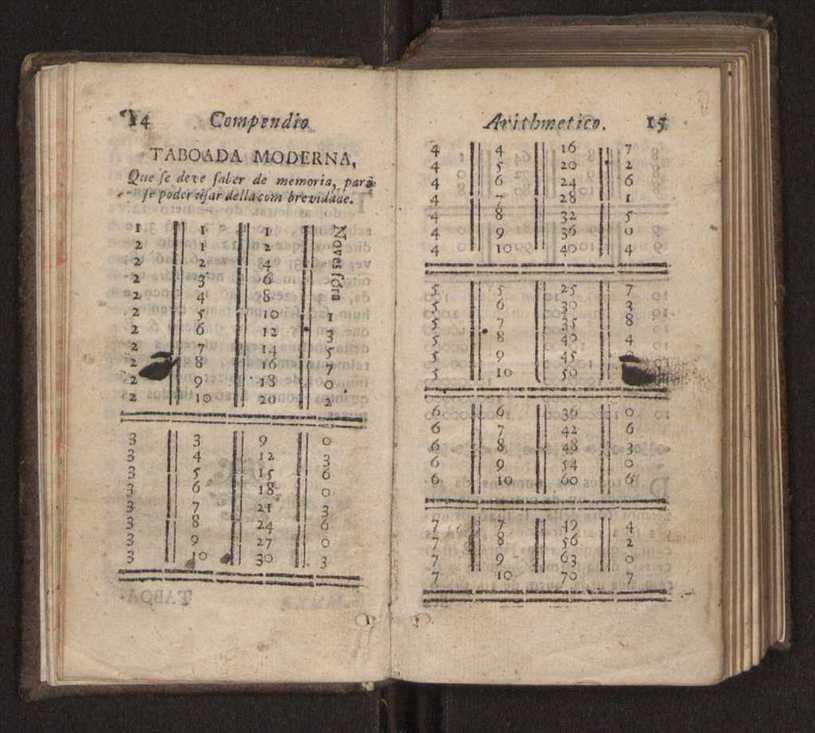 14 Compendio
TABOADA MODERNA,
Que ſe deve ſaber de memoria, para
ſe poder uſar della com brevidade.
Noves fóra
1 1 1
2 1 2
2 2 4
2 3 6
2 4 8
2 5 10 1
2 6 12 3
2 7 14 5
2 8 16 7
2 9 18 0
2 10 20 2
3 3 9 0
3 4 12 3
3 5 15 6
3 6 18 0
3 7 21 3
3 8 24 6
3 9 27 0
3 10 30 3
Arithmetico. 15
4 4 16 7
4 5 20 2
4 6 24 6
4 7 28 1
4 8 32 5
4 9 36 0
4 10 40 4
5 5 25 7
5 6 30 3
5 7 35 8
5 8 40 4
5 9 45
5 10 50
6 6 36 0
6 7 42 6
6 8 48 3
6 9 54 0
6 10 60 6
7 7 49 4
7 8 56 2
7 9 63 0
7 10 70 7